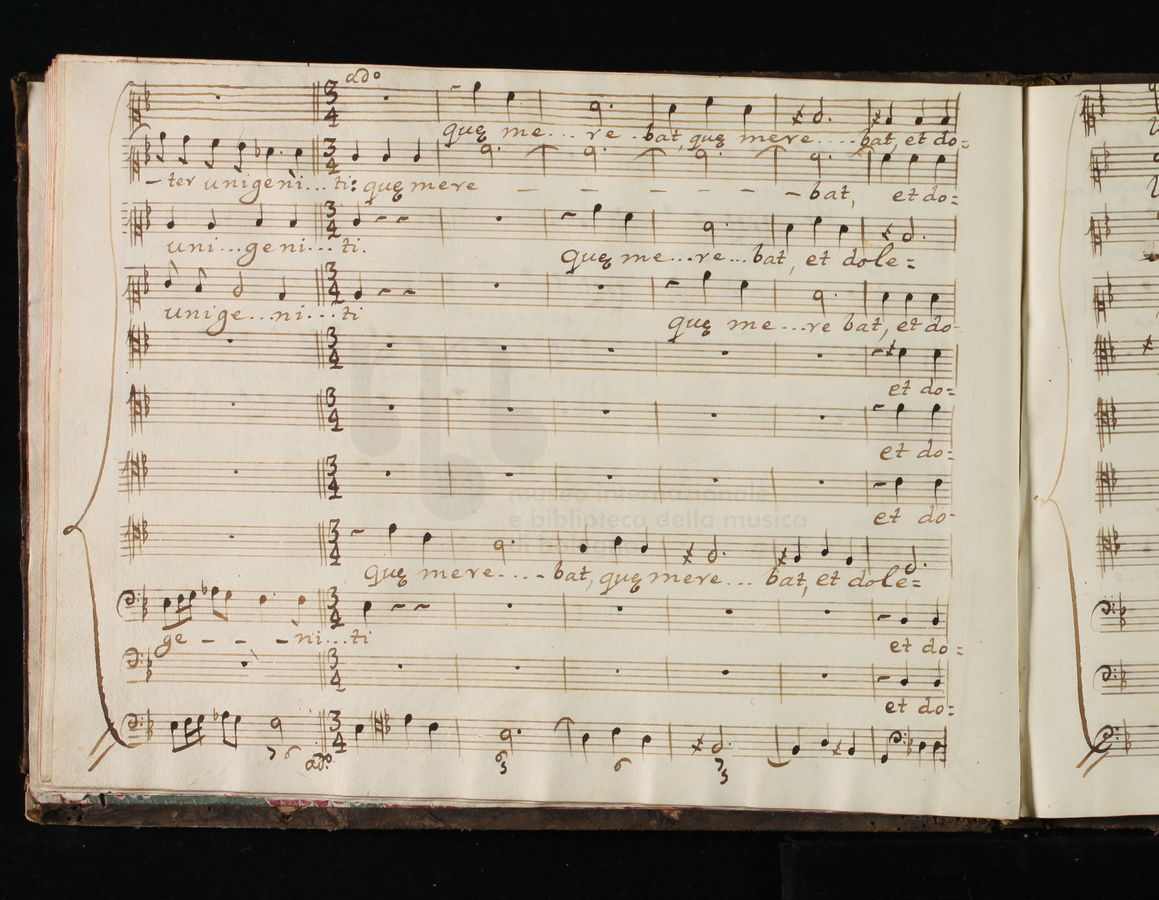 ado
quę me... re . bat, quę mere.....bat, et do=
- ter unigeni...ti: quę mere - - - - - - bat, et do=
uni...geni...ti. quę me...re...bat, et dole=
unige...ni...ti quę me...re bat, et do-
et do=
et do=
museo internazionale
e biblioteca della musica
et do-
quę mere....- bat, quę mere... bat, et dole=
ge - - - ni...ti et do=
et do=
7 6 ado. 6